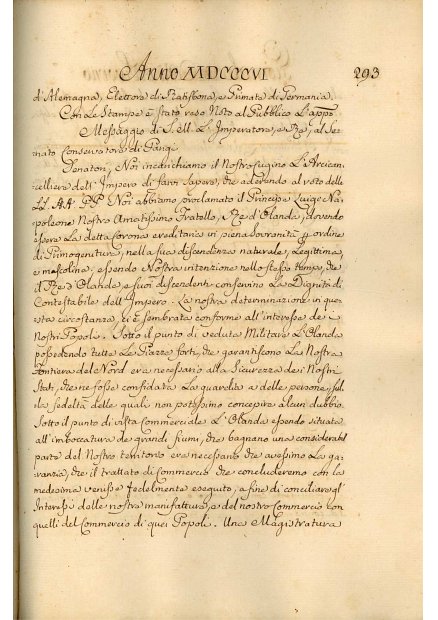 Anno MDCCCVI 293
d'Alemagna, Elettore di Ratisbona, e Primate di Germania.
Con Le Stampe è stato reso Noto al Pubblico L'app.º
Messaggio di S. M. L'Imperatore, e Rè, al Se-
nato Conservatore di Parigi
Senatori, Noi incarichiamo il Nostro cugino L'Arcican-
celliere dell'Impero di farvi sapere, che aderendo al voto delle
LL. AA. PP. Noi abbiamo proclamato il Principe Luigi Na-
poleone Nostro Amatissimo Fratello, a Rè d'Olanda, dovendo
essere La detta Corona ereditaria in piena Sovranità per ordine
di Primogenitura, nella sua discendenza naturale, Legittima,
e mascolina; essendo Nostra intenzione nello stesso tempo, che
il Rè d'Olanda, e suoi discendenti conservino La Dignità di
Contestabile dell'Impero. La nostra determinazione in que-
sta circostanza ci è sembrata conforme all'interesse de i
Nostri Popoli. Sotto il punto di veduta Militare L'Olanda
possedendo tutte Le Piazze forti, che garantiscono La Nostra
frontiera del Nord era necessario alla Sicurezza dei Nostri
Stati, che ne fosse confidata La guardia a delle persone, sul-
la fedeltà delle quali non potessimo concepire alcun dubbio.
Sotto il punto di vista Commerciale L'Olanda essendo situata
all'imboccatura de grandi fiumi, che bagnano una considerabil
parte del Nostro territorio era necessario che avessimo La ga-
ranzia, che il trattato di Commercio che concluderemo con la
medesima venisse fedelmente eseguito, a fine di conciliare gl'
Interessi delle nostre manifatture, e del nostro Commercio con
quelli del Commercio di quei Popoli. Una Magistratura